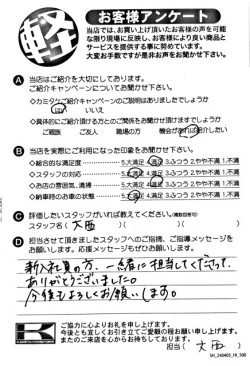 軽
お客様アンケート
当店では、お買い上げ頂いたお客様の声を可能
な限り現場に反映し、お客様により良い商品と
サービスを提供する事に努めています。
大変お手数ですが是非お声をお聞かせ下さい。
A 当店はご紹介を大切にしております。
ご紹介キャンペーンについてお聞かせ下さい。
◇カミタケご紹介キャンペーンのご説明はありましたでしょうか
はい いいえ
◇具体的にご紹介頂ける方とのご関係をお聞かせ頂けますでしょうか
ご親族 ご友人 職場の方 機会があれば紹介したい
B 当店を実際にご利用になった印象をお聞かせ下さい。
◇総合的な満足度 5.大満足 4.満足 3.ふつう 2.やや不満 1.不満
◇スタッフの対応 5.大満足 4.満足 3.ふつう 2.やや不満 1.不満
◇お店の雰囲気、清掃 5.大満足 4.満足 3.ふつう 2.やや不満 1.不満
◇納車時のお車の状態 5.大満足 4.満足 3.ふつう 2.やや不満 1.不満
C 評価したいスタッフがいれば教えてください。(複数回答可)
スタッフ名( 大西 )
D 担当させて頂きましたスタッフへのご指摘、ご指導メッセージを
お願いします。応援メッセージもぜひお願いします。
新入社員の方、一緒に担当してくださって、
ありがとうございました。
今後もよろしくお願いします。
ご協力に心よりお礼を申し上げます。
今後とも宜しくお引き立てご愛顧の程お願い申し上げます。
またのご来店を心からお待ちしております。
担当( 大西 )
SH_240403_HI_500